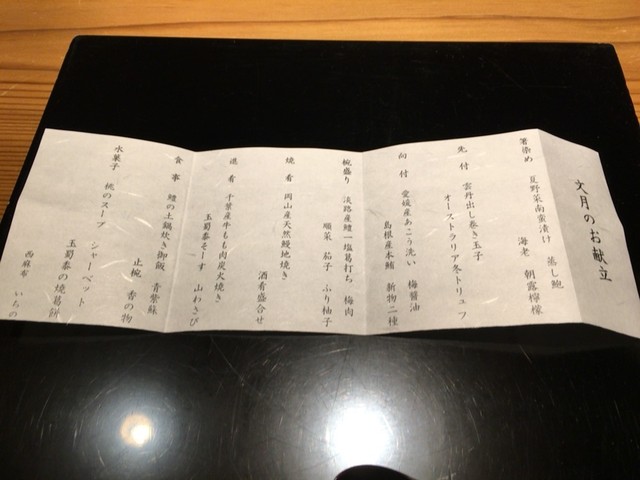 文月のお献立
箸染め 夏野菜南蛮漬け 蒸し鮑
海老 朝露檸檬
先付 雲丹出し巻き玉子
オーストラリア冬トリュフ
向付 愛媛産あこう洗い 梅醤油
島根産本鮪 新物二種
椀盛り 淡路産鱧一塩葛打ち 梅肉
順菜 茄子 ふり柚子
焼肴 岡山産天然鰻地焼き
酒肴盛合せ
進肴 千葉産牛もも肉炭火焼き
玉蜀黍そーす 山わさび
食事 鱧の土鍋炊き御飯 青紫蘇
止椀 香の物
水菓子 桃のスープ シャーベット
玉蜀黍の焼葛餅
西麻布 いちの